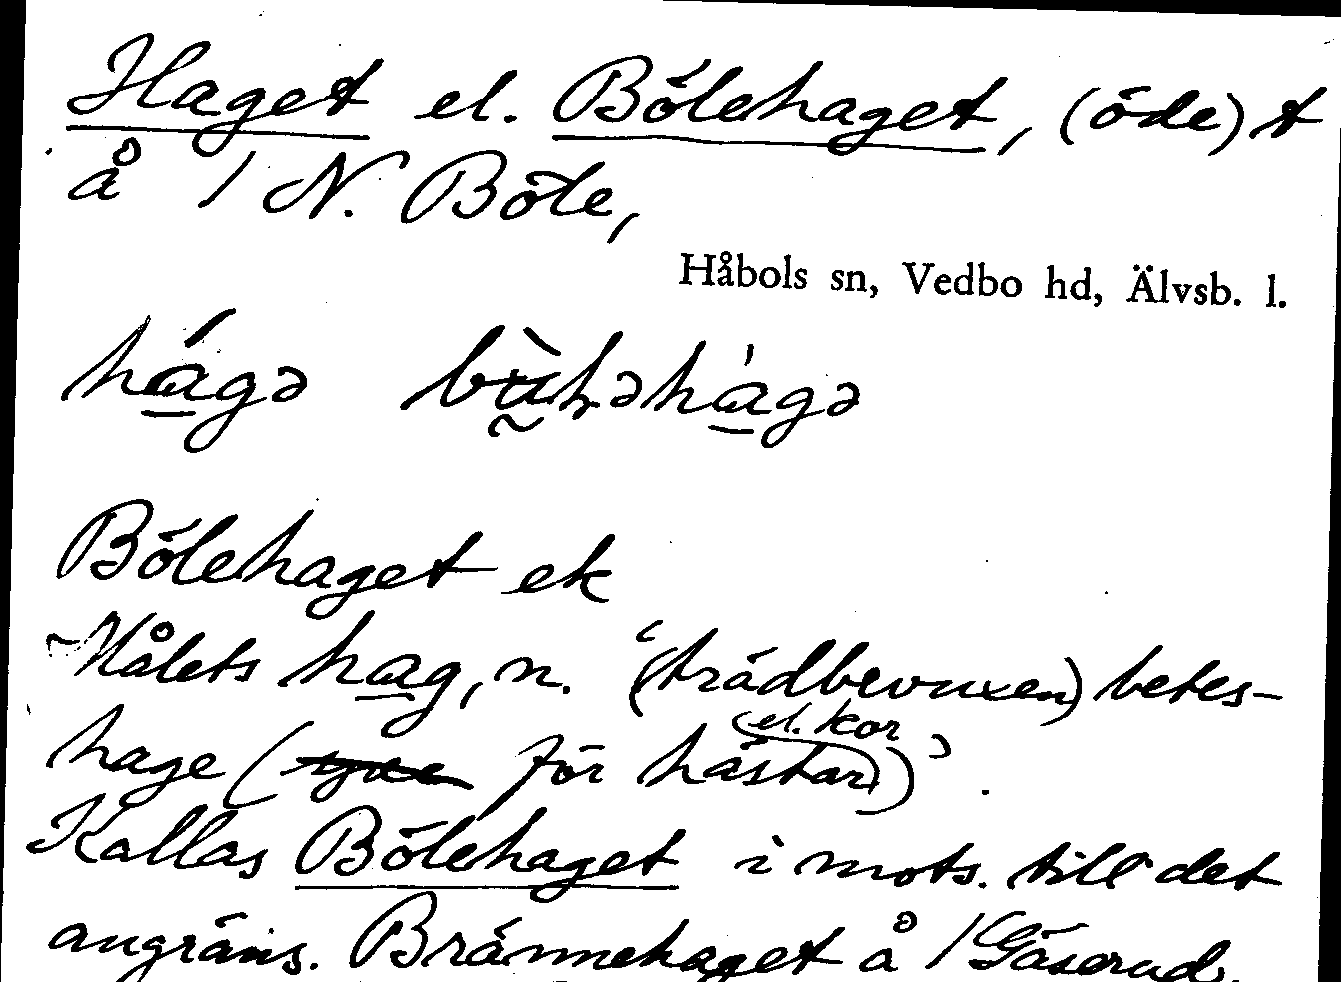 Haget el. Bölehaget, (öde) t
å 1 N. Böle,
Håbols sn, Vedbo hd, Älvsb. l.
hágə bùləhágə
Bölehaget ek
Målets hag, n. '(trädbevuxen) betes-
hage (för hästar (el. kor))'.
Kallas Bölehaget i mots. till det
angräns. Brännehaget å 1 Gäserud.